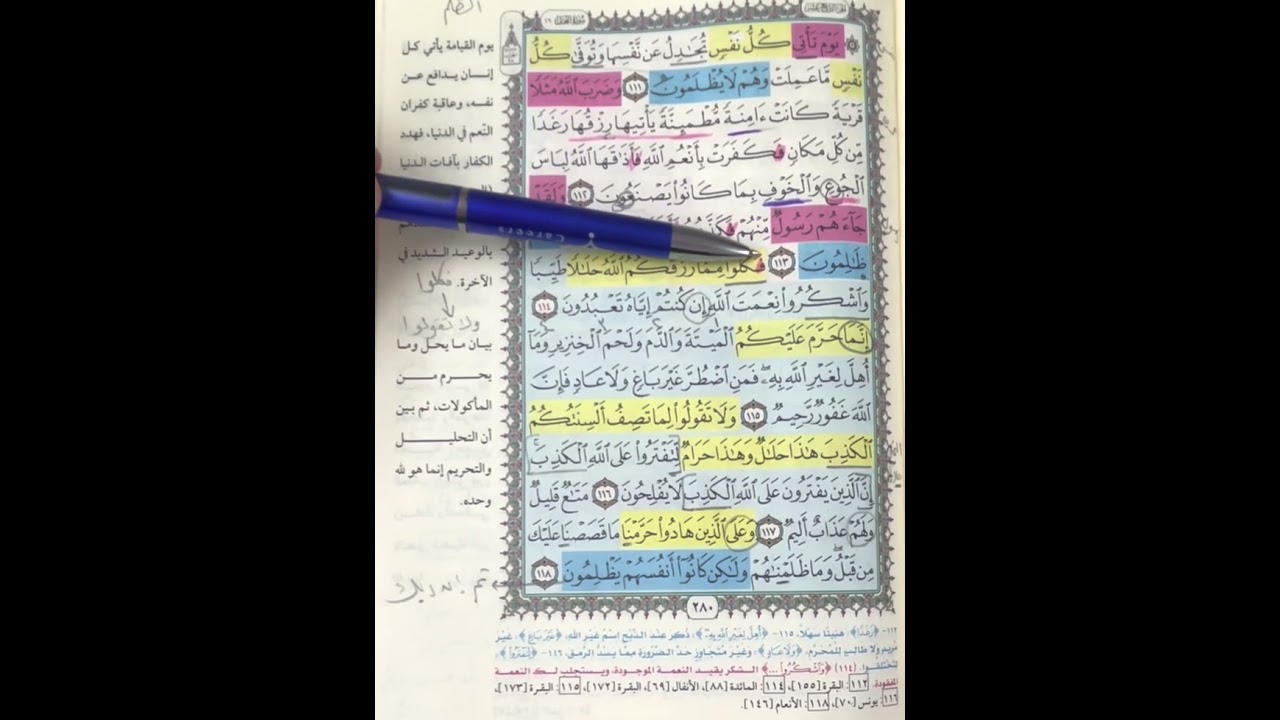 سُورَةُ النَّحْلِ ١٦
۞ يَوْمَ تَأْتِي كُلُّ نَفْسٍ تُجَٰدِلُ عَن نَّفْسِهَا وَتُوَفَّىٰ كُلُّ
نَفْسٍ مَّا عَمِلَتْ وَهُمْ لَا يُظْلَمُونَ ١١١ وَضَرَبَ ٱللَّهُ مَثَلًا
قَرْيَةً كَانَتْ ءَامِنَةً مُّطْمَئِنَّةً يَأْتِيهَا رِزْقُهَا رَغَدًا
مِّن كُلِّ مَكَانٍ فَكَفَرَتْ بِأَنْعُمِ ٱللَّهِ فَأَذَٰقَهَا ٱللَّهُ لِبَاسَ
ٱلْجُوعِ وَٱلْخَوْفِ بِمَا كَانُوا۟ يَصْنَعُونَ ١١٢ وَلَقَدْ
جَآءَهُمْ رَسُولٌ مِّنْهُمْ فَكَذَّبُوهُ
ظَٰلِمُونَ ١١٣ فَكُلُوا۟ مِمَّا رَزَقَكُمُ ٱللَّهُ حَلَٰلًا طَيِّبًا
وَٱشْكُرُوا۟ نِعْمَتَ ٱللَّهِ إِن كُنتُمْ إِيَّاهُ تَعْبُدُونَ ١١٤
إِنَّمَا حَرَّمَ عَلَيْكُمُ ٱلْمَيْتَةَ وَٱلدَّمَ وَلَحْمَ ٱلْخِنزِيرِ وَمَآ
أُهِلَّ لِغَيْرِ ٱللَّهِ بِهِۦ ۖ فَمَنِ ٱضْطُرَّ غَيْرَ بَاغٍ وَلَا عَادٍ فَإِنَّ
ٱللَّهَ غَفُورٌ رَّحِيمٌ ١١٥ وَلَا تَقُولُوا۟ لِمَا تَصِفُ أَلْسِنَتُكُمُ
ٱلْكَذِبَ هَٰذَا حَلَٰلٌ وَهَٰذَا حَرَامٌ لِّتَفْتَرُوا۟ عَلَى ٱللَّهِ ٱلْكَذِبَ ۚ
إِنَّ ٱلَّذِينَ يَفْتَرُونَ عَلَى ٱللَّهِ ٱلْكَذِبَ لَا يُفْلِحُونَ ١١٦ مَتَٰعٌ قَلِيلٌ
وَلَهُمْ عَذَابٌ أَلِيمٌ ١١٧ وَعَلَى ٱلَّذِينَ هَادُوا۟ حَرَّمْنَا مَا قَصَصْنَا عَلَيْكَ
مِن قَبْلُ ۖ وَمَا ظَلَمْنَٰهُمْ وَلَٰكِن كَانُوٓا۟ أَنفُسَهُمْ يَظْلِمُونَ ١١٨
٢٨٠
يوم القيامة يأتي كل
إنسان يدافع عن
نفسه، وعاقبة كفران
النعم في الدنيا، فهدد
الكفار بآفات الدنيا
بالوعيد الشديد في
الآخرة. فكلوا
ولا تقولوا
بيان ما يحل وما
يحرم من
المأكولات، ثم بين
أن التحليل
والتحريم إنما هو لله
وحده.
Careers
١١٢- ﴿رَغَدًا﴾: هنيئًا سهلًا، ١١٥- ﴿أُهِلَّ لِغَيْرِ ٱللَّهِ بِهِۦ﴾: ذكر عند الذبح اسم غير الله، ﴿غَيْرَ بَاغٍ﴾: غير
مريد ولا طالب للمحرم، ﴿وَلَا عَادٍ﴾: وغير متجاوز حد الضرورة مما يسد الرمق، ١١٦- ﴿لِتَفْتَرُوا﴾:
لتختلقوا. (١١٤) ﴿وَٱشْكُرُوا ...﴾ الشكر يقيد النعمة الموجودة، ويستجلب لك النعمة
المفقودة. ١١٢: البقرة [١٥٥]، ١١٤: المائدة [٨٨]، الأنفال [٦٩]، البقرة [١٧٢]، ١١٥: البقرة [١٧٣]،
١١٦: يونس [٧٠]، ١١٨: الأنعام [١٤٦].